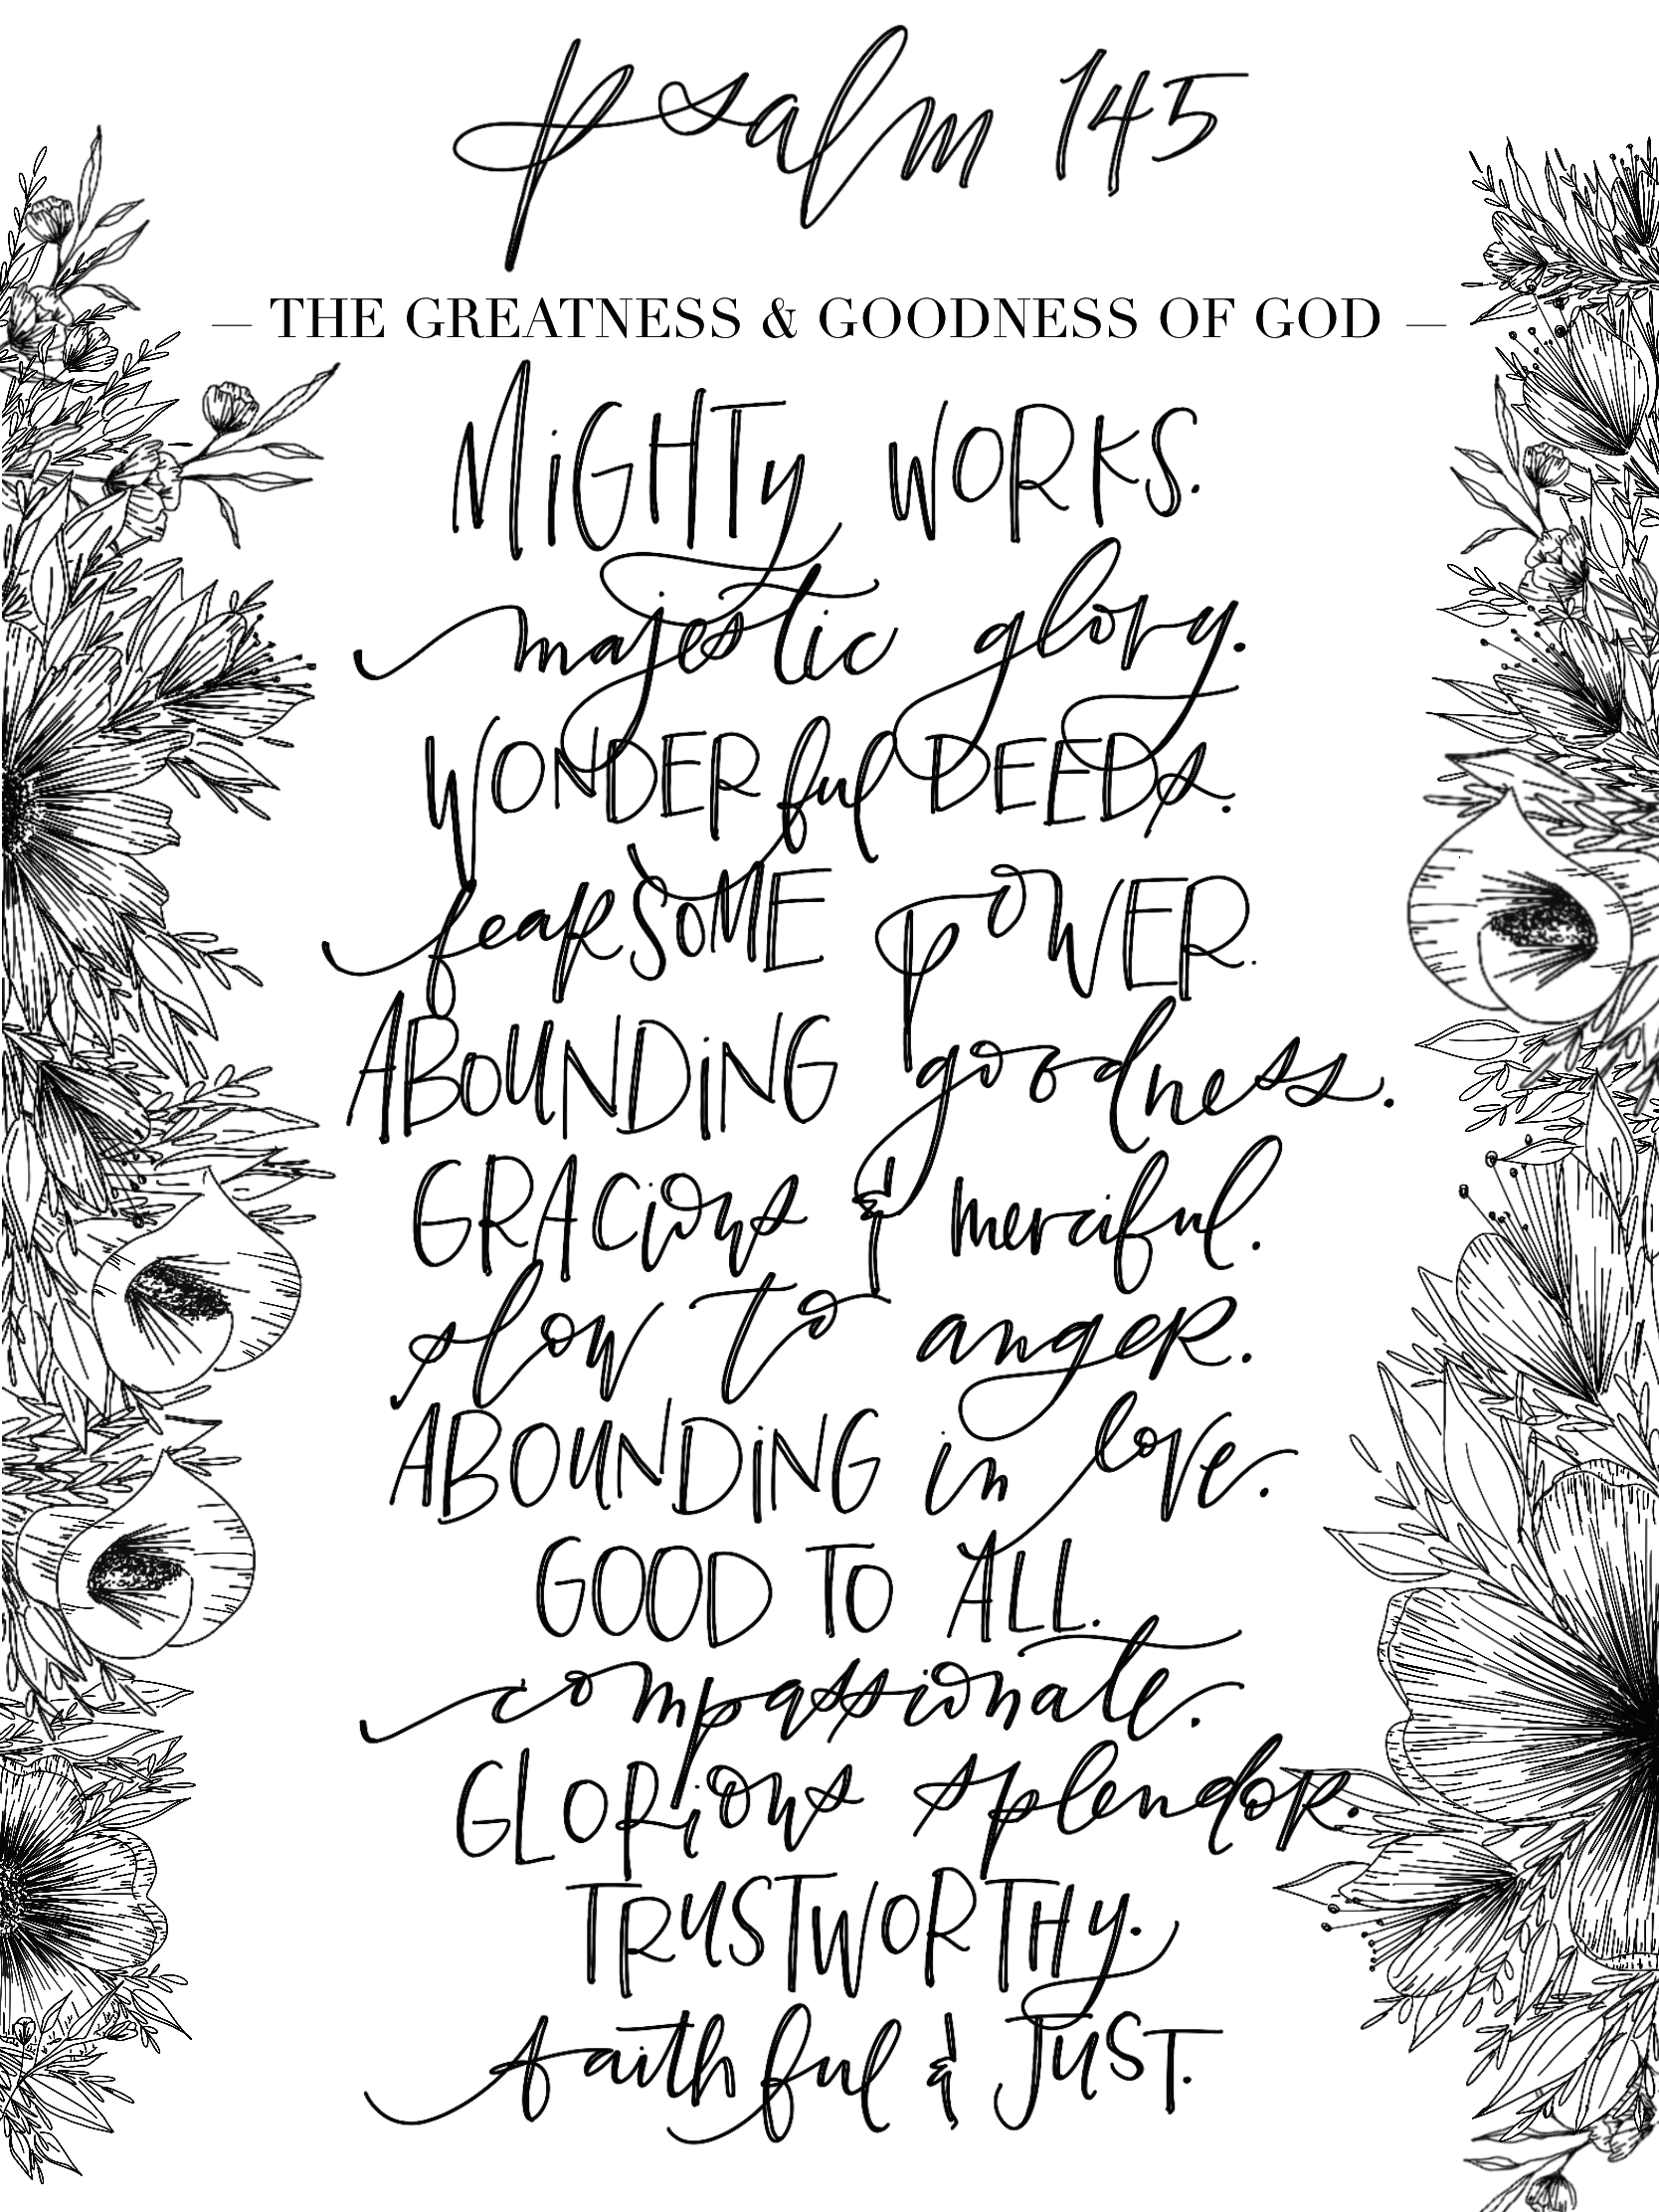 psalm 145
— THE GREATNESS & GOODNESS OF GOD —
MiGHTy WORKS.
majestic glory.
WONDERful DEEDs.
feaRSOME pOWER.
ABOUNDiNG goodness.
GRACious & merciful.
slow to angeR.
ABOUNDiNG in love.
GOOD TO ALL.
compassionate.
GLORious splendoR.
TRUSTWORTHy.
faithful & JUST.